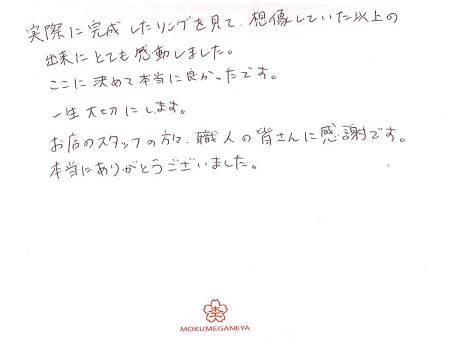 実際に完成したリングを見て、想像していた以上の
出来にとても感動しました。
ここに決めて本当に良かったです。
一生大切にします。
お店のスタッフの方々、職人の皆さんに感謝です。
本当にありがとうございました。
杢
MOKUMEGANEYA